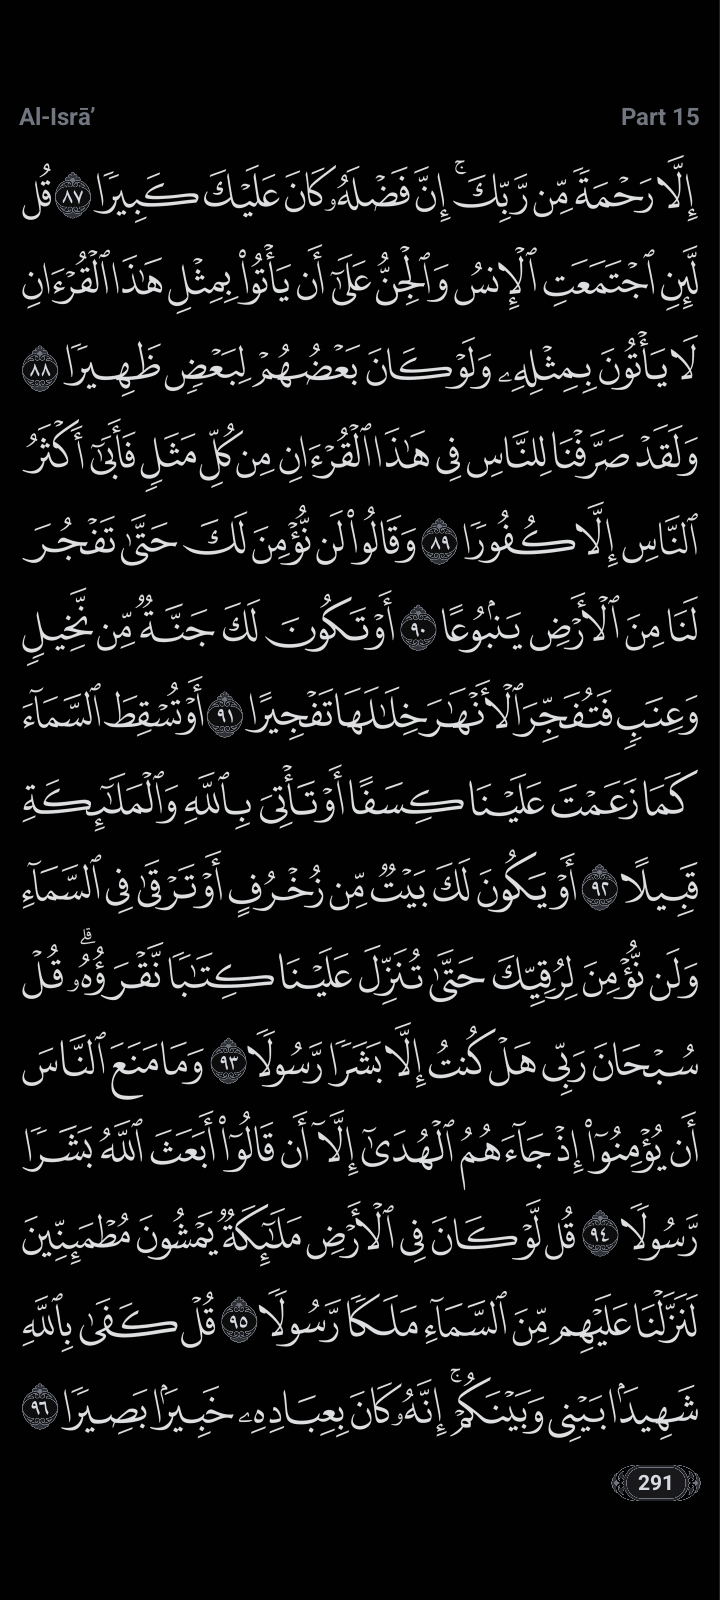 Al-Isrā’
Part 15
إِلَّا رَحْمَةً مِّن رَّبِّكَ ۚ إِنَّ فَضْلَهُۥ كَانَ عَلَيْكَ كَبِيرًا ٨٧ قُل
لَّئِنِ ٱجْتَمَعَتِ ٱلْإِنسُ وَٱلْجِنُّ عَلَىٰٓ أَن يَأْتُوا۟ بِمِثْلِ هَٰذَا ٱلْقُرْءَانِ
لَا يَأْتُونَ بِمِثْلِهِۦ وَلَوْ كَانَ بَعْضُهُمْ لِبَعْضٍ ظَهِيرًا ٨٨
وَلَقَدْ صَرَّفْنَا لِلنَّاسِ فِى هَٰذَا ٱلْقُرْءَانِ مِن كُلِّ مَثَلٍ فَأَبَىٰٓ أَكْثَرُ
ٱلنَّاسِ إِلَّا كُفُورًا ٨٩ وَقَالُوا۟ لَن نُّؤْمِنَ لَكَ حَتَّىٰ تَفْجُرَ
لَنَا مِنَ ٱلْأَرْضِ يَنۢبُوعًا ٩٠ أَوْ تَكُونَ لَكَ جَنَّةٌ مِّن نَّخِيلٍ
وَعِنَبٍ فَتُفَجِّرَ ٱلْأَنْهَٰرَ خِلَٰلَهَا تَفْجِيرًا ٩١ أَوْ تُسْقِطَ ٱلسَّمَآءَ
كَمَا زَعَمْتَ عَلَيْنَا كِسَفًا أَوْ تَأْتِىَ بِٱللَّهِ وَٱلْمَلَٰٓئِكَةِ
قَبِيلًا ٩٢ أَوْ يَكُونَ لَكَ بَيْتٌ مِّن زُخْرُفٍ أَوْ تَرْقَىٰ فِى ٱلسَّمَآءِ
وَلَن نُّؤْمِنَ لِرُقِيِّكَ حَتَّىٰ تُنَزِّلَ عَلَيْنَا كِتَٰبًا نَّقْرَؤُهُۥ ۗ قُلْ
سُبْحَانَ رَبِّى هَلْ كُنتُ إِلَّا بَشَرًا رَّسُولًا ٩٣ وَمَا مَنَعَ ٱلنَّاسَ
أَن يُؤْمِنُوٓا۟ إِذْ جَآءَهُمُ ٱلْهُدَىٰٓ إِلَّآ أَن قَالُوٓا۟ أَبَعَثَ ٱللَّهُ بَشَرًا
رَّسُولًا ٩٤ قُل لَّوْ كَانَ فِى ٱلْأَرْضِ مَلَٰٓئِكَةٌ يَمْشُونَ مُطْمَئِنِّينَ
لَنَزَّلْنَا عَلَيْهِم مِّنَ ٱلسَّمَآءِ مَلَكًا رَّسُولًا ٩٥ قُلْ كَفَىٰ بِٱللَّهِ
شَهِيدًۢا بَيْنِى وَبَيْنَكُمْ ۚ إِنَّهُۥ كَانَ بِعِبَادِهِۦ خَبِيرًۢا بَصِيرًا ٩٦
291